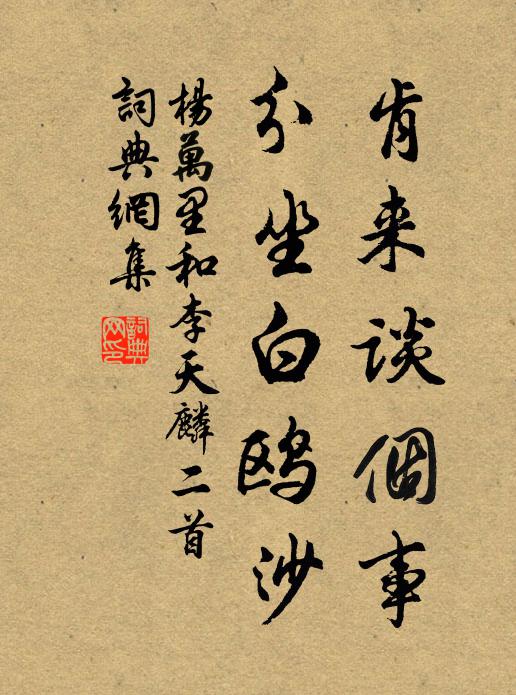 肯来談個事
分坐白鸥沙
楊萬里和李天麟二首
詞典網集
詞典
网印